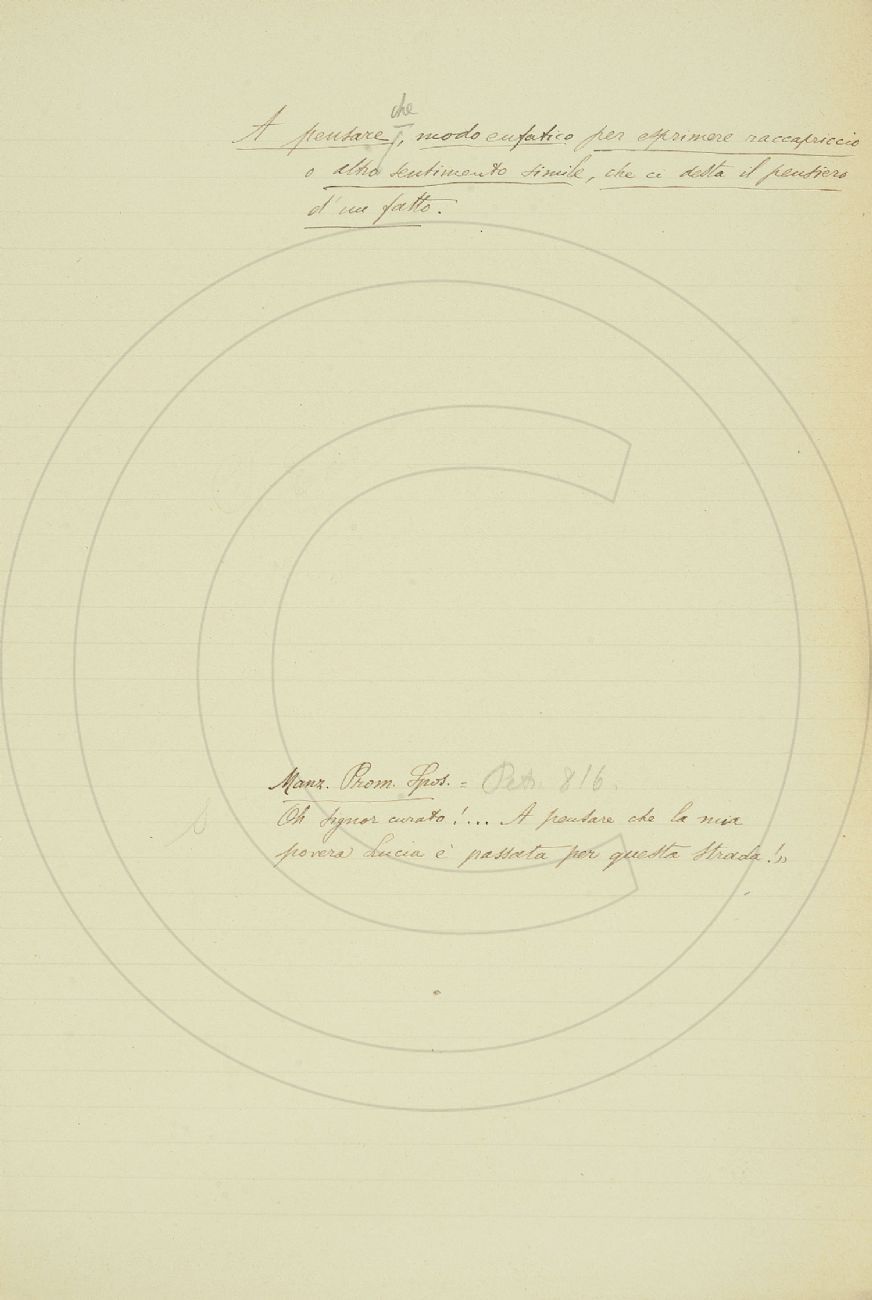 che
A pensare, modo enfatico per esprimere raccapriccio
o altro sentimento simile, che ci desta il pensiero
d'un fatto.
Manz. Prom. Spos. = Petr. 816.
Oh signor curato!... A pensare che la mia
povera Lucia è passata per questa strada!»